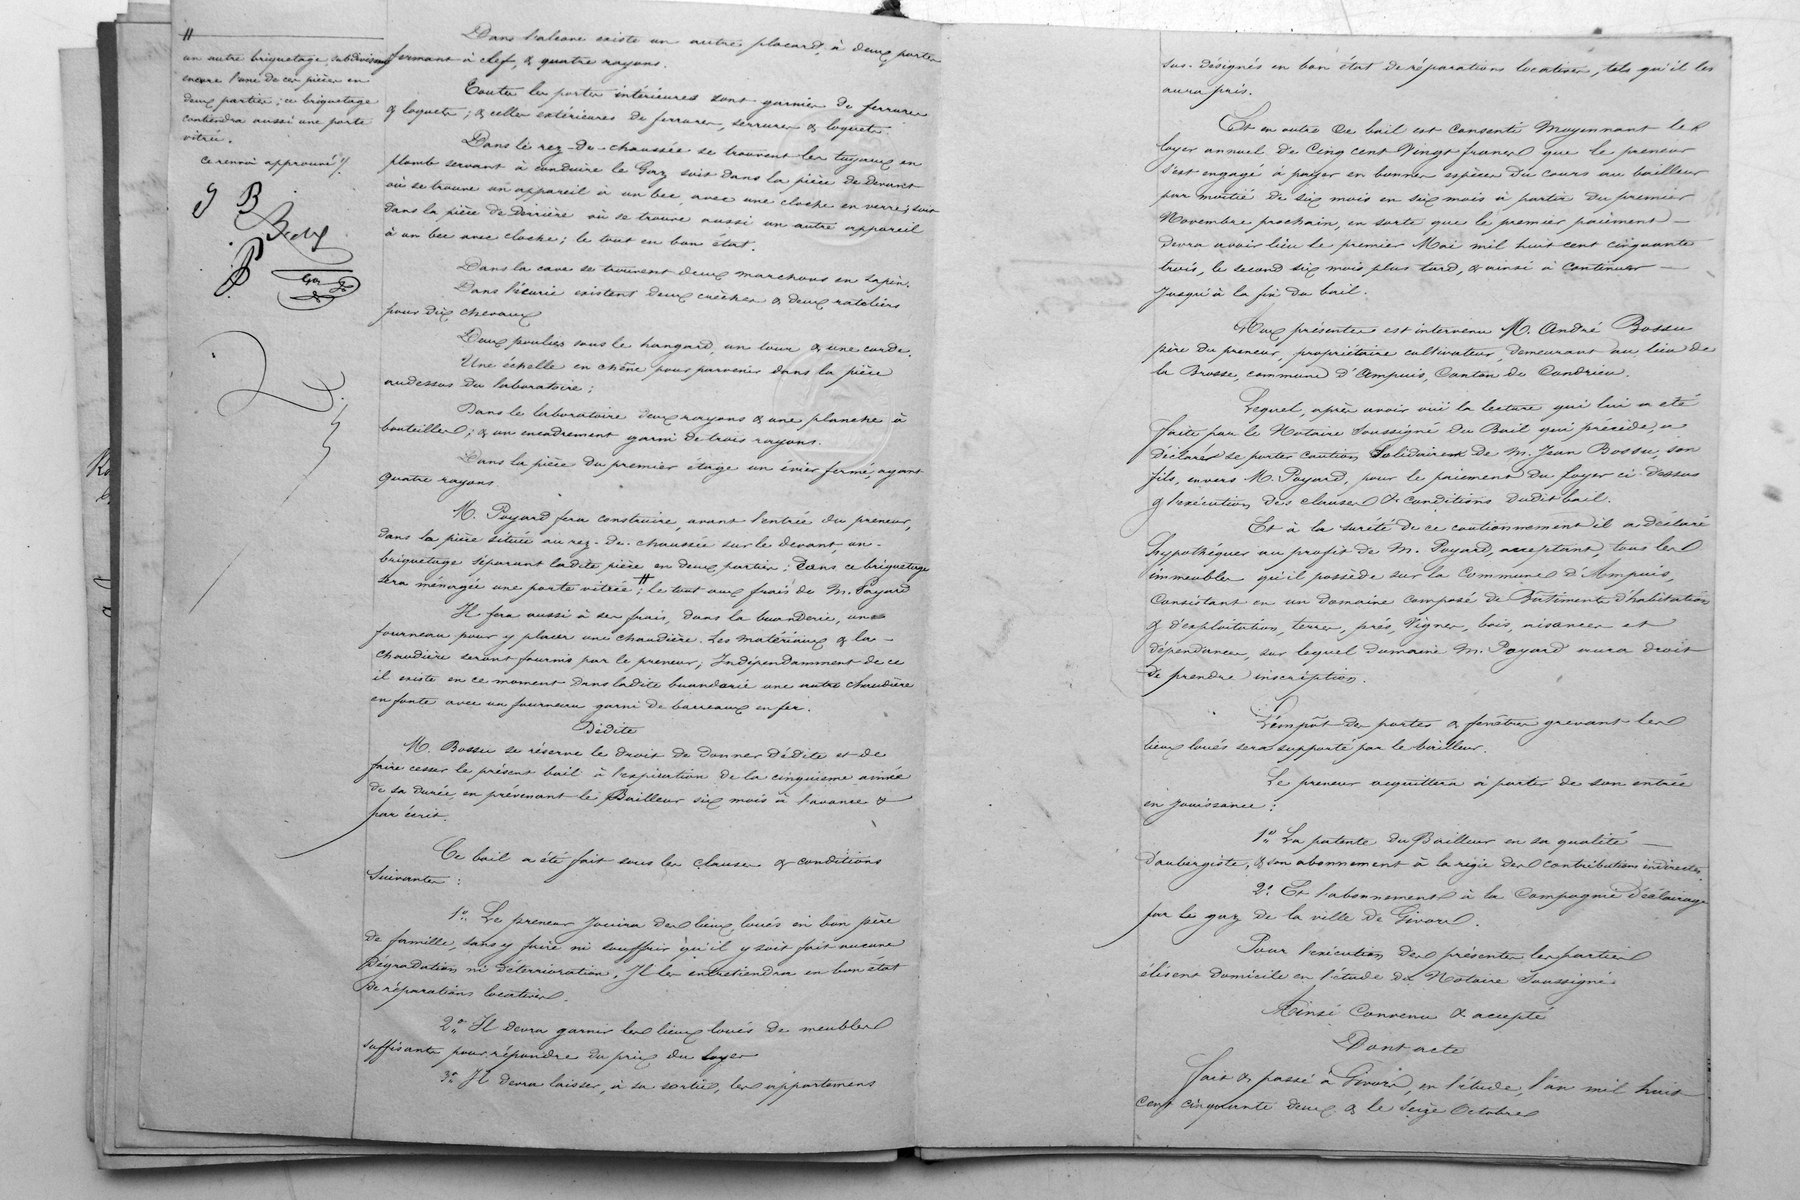 Dans l'alcove existe un autre placard, à deux portes
fermant à clef, & quatre rayons.
Toutes les portes intérieures sont garnies de ferrures
& loquets; & celles extérieures de ferrures, serrures & loquets
Dans le rez-de-chaussée se trouvent les tuyaux en
plomb servant à conduire le Gaz soit dans la pièce de devant
où se trouve un appareil à un bec, avec une cloche en verre; soit
dans la pièce de derrière où se trouve aussi un autre appareil
à un bec avec cloche; le tout en bon état.
Dans la cave se trouvent deux marchons en sapin.
Dans l'écurie existent deux crèches & deux rateliers
pour dix chevaux
Deux poulies sous le hangard, un tour & une corde.
Une échelle en chêne pour parvenir dans la pièce
audessus du laboratoire;
Dans le laboratoire deux rayons & une planche à
bouteilles; & un encadrement garni de trois rayons.
Dans la pièce du premier étage un évier fermé, ayant
quatre rayons.
M. Poyard fera construire, avant l'entrée du preneur,
dans la pièce située au rez-de-chaussée sur le devant, un
briquetage séparant ladite pièce en deux parties; dans ce briquetage
sera ménagée une porte vitrée #; le tout aux frais de M. Poyard
Il fera aussi à ses frais, dans la buanderie, un
fourneau pour y placer une chaudière. Les matériaux & la
chaudière seront fournis par le preneur; Indépendamment de ce
il existe en ce moment dans ladite buanderie une autre chaudière
en fonte avec un fourneau garni de barreaux en fer.
Dédite
M. Bossu se réserve le droit de donner dédite et de
faire cesser le présent bail à l'expiration de la cinquième année
de sa durée, en prévenant le Bailleur six mois à l'avance &
par écrit.
Ce bail a été fait sous les clauses & conditions
suivantes:
1º. Le preneur jouira des lieux loués en bon père
de famille, sans y faire ni souffrir qu'il y soit fait aucune
dégradation ni détérioration, Il les entretiendra en bon état
de réparations locatives.
2º. Il devra garnir les lieux loués de meubles
suffisants pour répondre du prix du loyer
3º. Il devra laisser, à sa sortie, les appartemens
#
un autre briquetage, subdivisant
encore l'une de ces pièces en
deux parties; ce briquetage
contiendra aussi une porte
vitrée.
Ce renvoi approuvé ./.
J B
sus-désignés en bon état de réparations locatives, tels qu'il les
aura pris.
Et en outre Ce bail est consenti Moyennant le
loyer annuel de Cinq cent Vingt francs que le preneur
s'est engagé à payer en bonnes espèces du cours au bailleur
par moitié de six mois en six mois à partir du premier
Novembre prochain, en sorte que le premier paiement
devra avoir lieu le premier Mai mil huit cent cinquante
trois, le second six mois plus tard, & ainsi à continuer
jusqu'à la fin du bail.
Aux présentes est intervenu M. André Bossu
père du preneur, propriétaire cultivateur, demeurant au lieu de
la Brosse, commune d'Ampuis, Canton de Condrieu.
Lequel, après avoir ouï la lecture qui lui a été
faite par le Notaire soussigné du Bail qui précède, a
déclaré se porter caution Solidaire de M. Jean Bossu, son
fils, envers M. Poyard, pour le paiement du loyer ci-dessus
& l'exécution des clauses & conditions dudit bail.
Et à la sureté de ce cautionnement il a déclaré
hypothéquer au profit de M. Poyard, acceptant, tous les
immeubles qu'il possède sur la Commune d'Ampuis,
Consistant en un domaine composé de Bâtiments d'habitation
& d'exploitation, terres, prés, Vignes, bois, aisances et
dépendances, sur lequel domaine M. Poyard aura droit
de prendre inscription.
L'impôt des portes & fenêtres grevant les
lieux loués sera supporté par le bailleur.
Le preneur acquittera à partir de son entrée
en jouissance:
1º. La patente du Bailleur en sa qualité
d'aubergiste, & son abonnement à la régie des Contributions indirectes.
2º. Et l'abonnement à la Compagnie d'éclairage
par le gaz de la ville de Givors.
Pour l'exécution des présentes les parties
élisent domicile en l'étude du Notaire Soussigné
Ainsi Convenu & accepté
Dont acte
Fait & passé à Givors, en l'étude, l'an mil huit
cent cinquante deux & le Seize Octobre